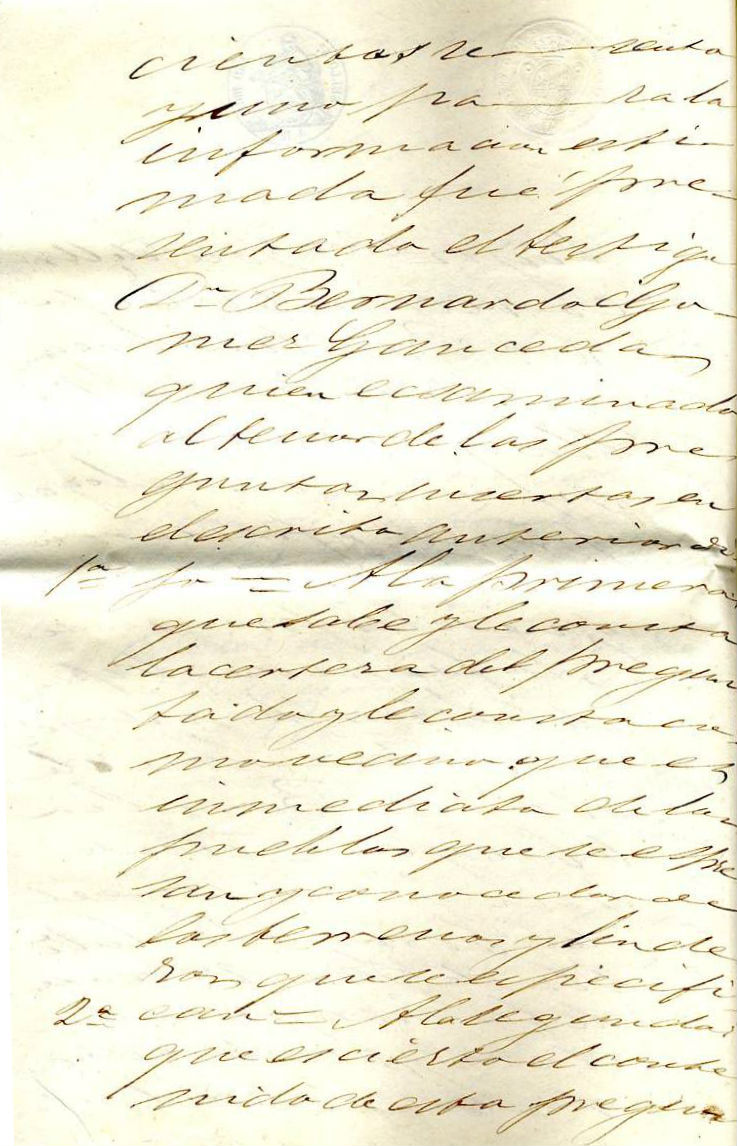 cientos se senta
y uno pa ra la
informacion esti
mada fue pre
sentado el testigo
Dn Bernardo Go
mez Ganceda
quien ecsaminado
al tenor de las pre
guntas insertas en
el escrito anterior di
1ª jo = A la primera
que sabe y le consta
la certeza del pregun
tado y le consta co
mo vecino que es
inmediato de los
pueblos que se espre
san y conocedor de
los terrenos y linde
ros que se especifi
2ª can = A la segunda
que es cierto el conte
nido de esta pregun